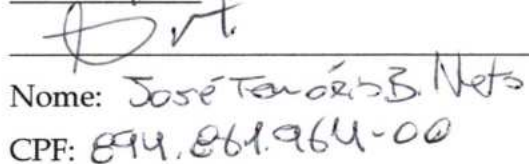 Nome: José Tenório B. Neto
CPF: 894.861.964-00